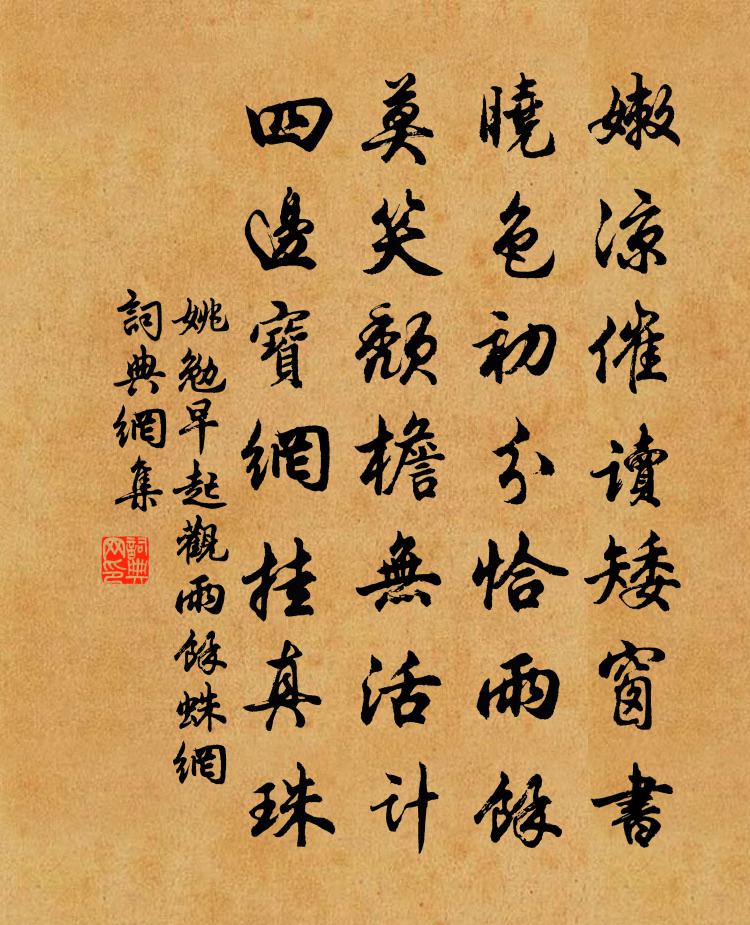 嫩凉催讀矮窗書
曉色初分恰雨餘
莫笑頹檐無活計
四邊寶網挂真珠
姚勉早起觀雨餘蛛網
詞典網集
詞典網印